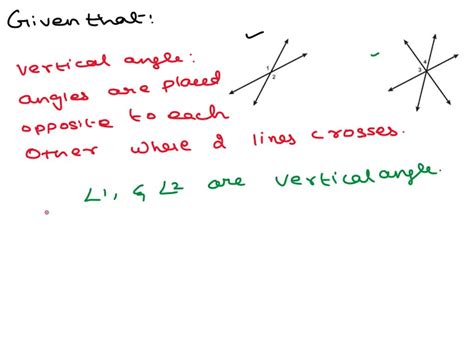 Given that:
vertical angle:
angles are placed
opposite to each
Other where 2 lines crosses.
∠1, & ∠2 are vertical angle.
1
2
4
3